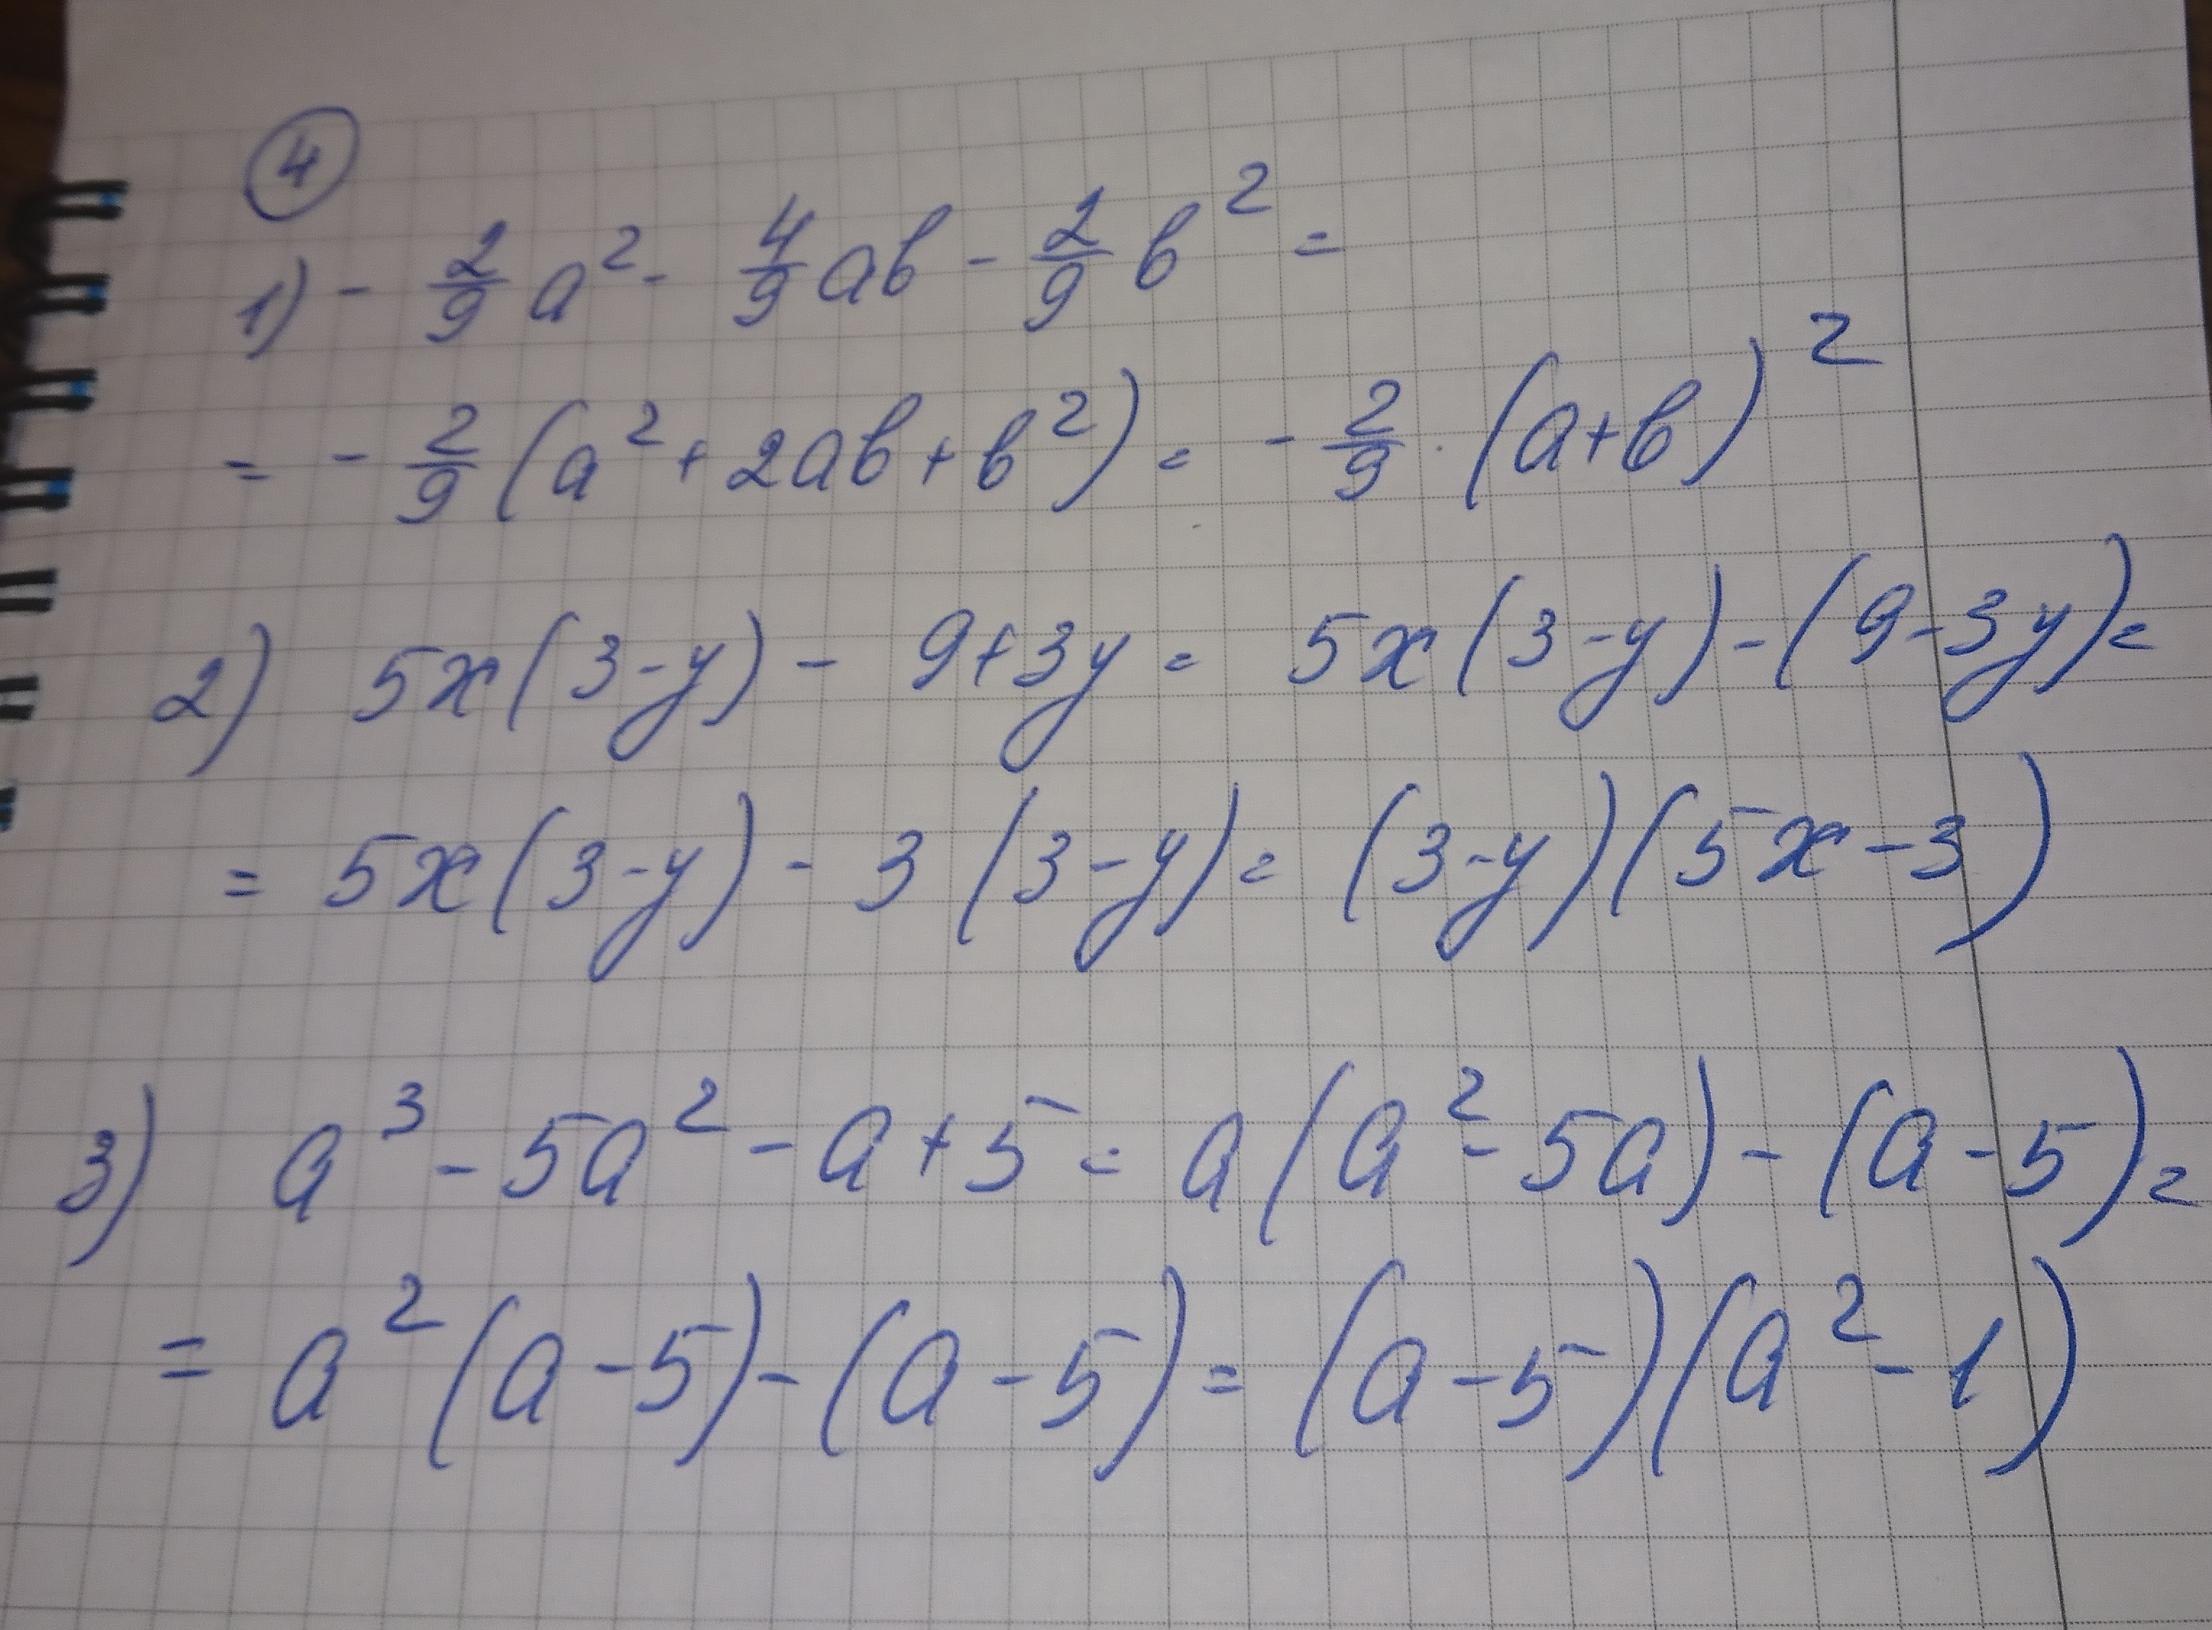 4
1) - 2/9 a² - 4/9 ab - 2/9 b² =
= - 2/9 (a² + 2ab + b²) = - 2/9 · (a+b)²
2) 5x(3-y) - 9+3y = 5x(3-y)-(9-3y)=
= 5x(3-y) - 3(3-y) = (3-y)(5x-3)
3) a³ - 5a² - a + 5 = a(a² - 5a) - (a-5) =
= a²(a-5)-(a-5) = (a-5)(a²-1)